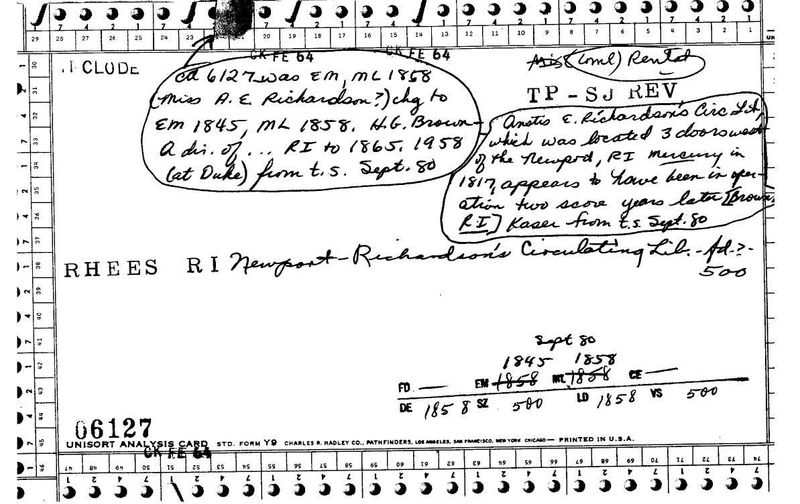 29 28 27 26 25 24 23 20 19 18 17 16 15 14 13 12 11 10 9 8 7 6 5 4 3 2 1
CK FE 64
CK FE 64
CLODE
cd 6127 was EM, ML 1858
(Miss A. E. Richardson?) chg to
EM 1845, ML 1858. H.G. Brown-
A dir. of... RI to 1865. 1958
(at Duke) from t.s. Sept. 80
(coml) Rental
TP-SJ REV
Anstis E. Richardson's Circ Lib,
which was located 3 doors west
of the Newport, RI Mercury in
1817, appears to have been in oper-
ation two score years later [Brown,
RI] Kaser from t.s. Sept. 80
RHEES RI Newport-Richardson's Circulating Lib. -fd.?-
500
Sept 80
1845 1858
FD. — EM 1858 ML 1858 CE —
DE 1858 SZ 500 LD 1858 VS 500
06127
UNISORT ANALYSIS CARD STD. FORM Y9 CHARLES R. HADLEY CO., PATHFINDERS, LOS ANGELES, SAN FRANCISCO, NEW YORK CHICAGO— PRINTED IN U.S.A.
CK FE 64
47 48 49 50 51 52 53 54 55 56 57 58 59 60 61 62 63 64 65 66 67 68 69 70 71 72 73 74